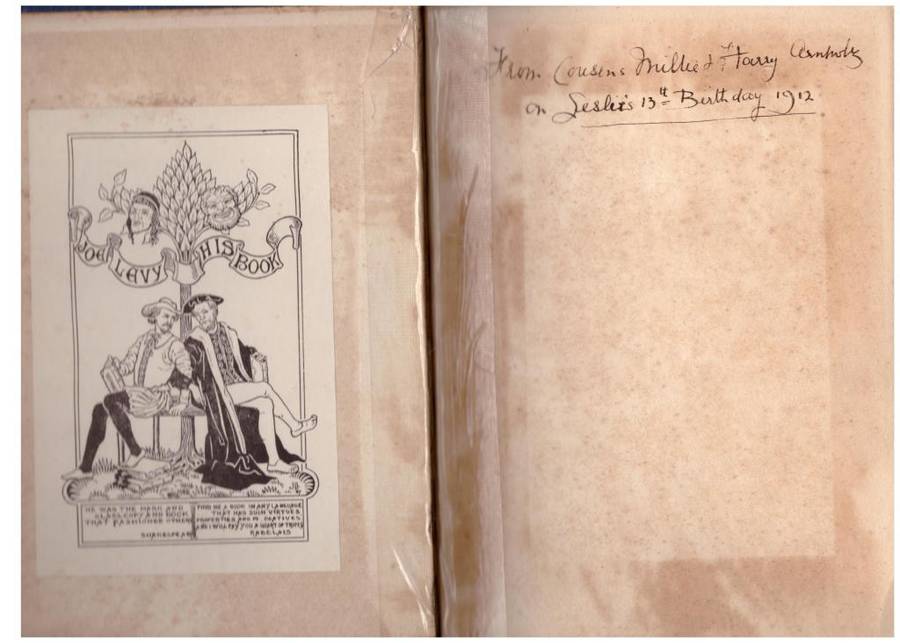 JOE LEVY HIS BOOK
HE WAS THE MARK AND
GLASS, COPY AND BOOK
THAT FASHIONED OTHERS
SHAKESPEARE
FIND ME A BOOK IN ANY LANGUAGE
THAT HAS SUCH VIRTUES
PROPERTIES AND
AND I WILL PAY YOU A QUART OF TRIPES
RABELAIS
From Cousins Millie & Harry
on Leslie's 13th Birthday 1912